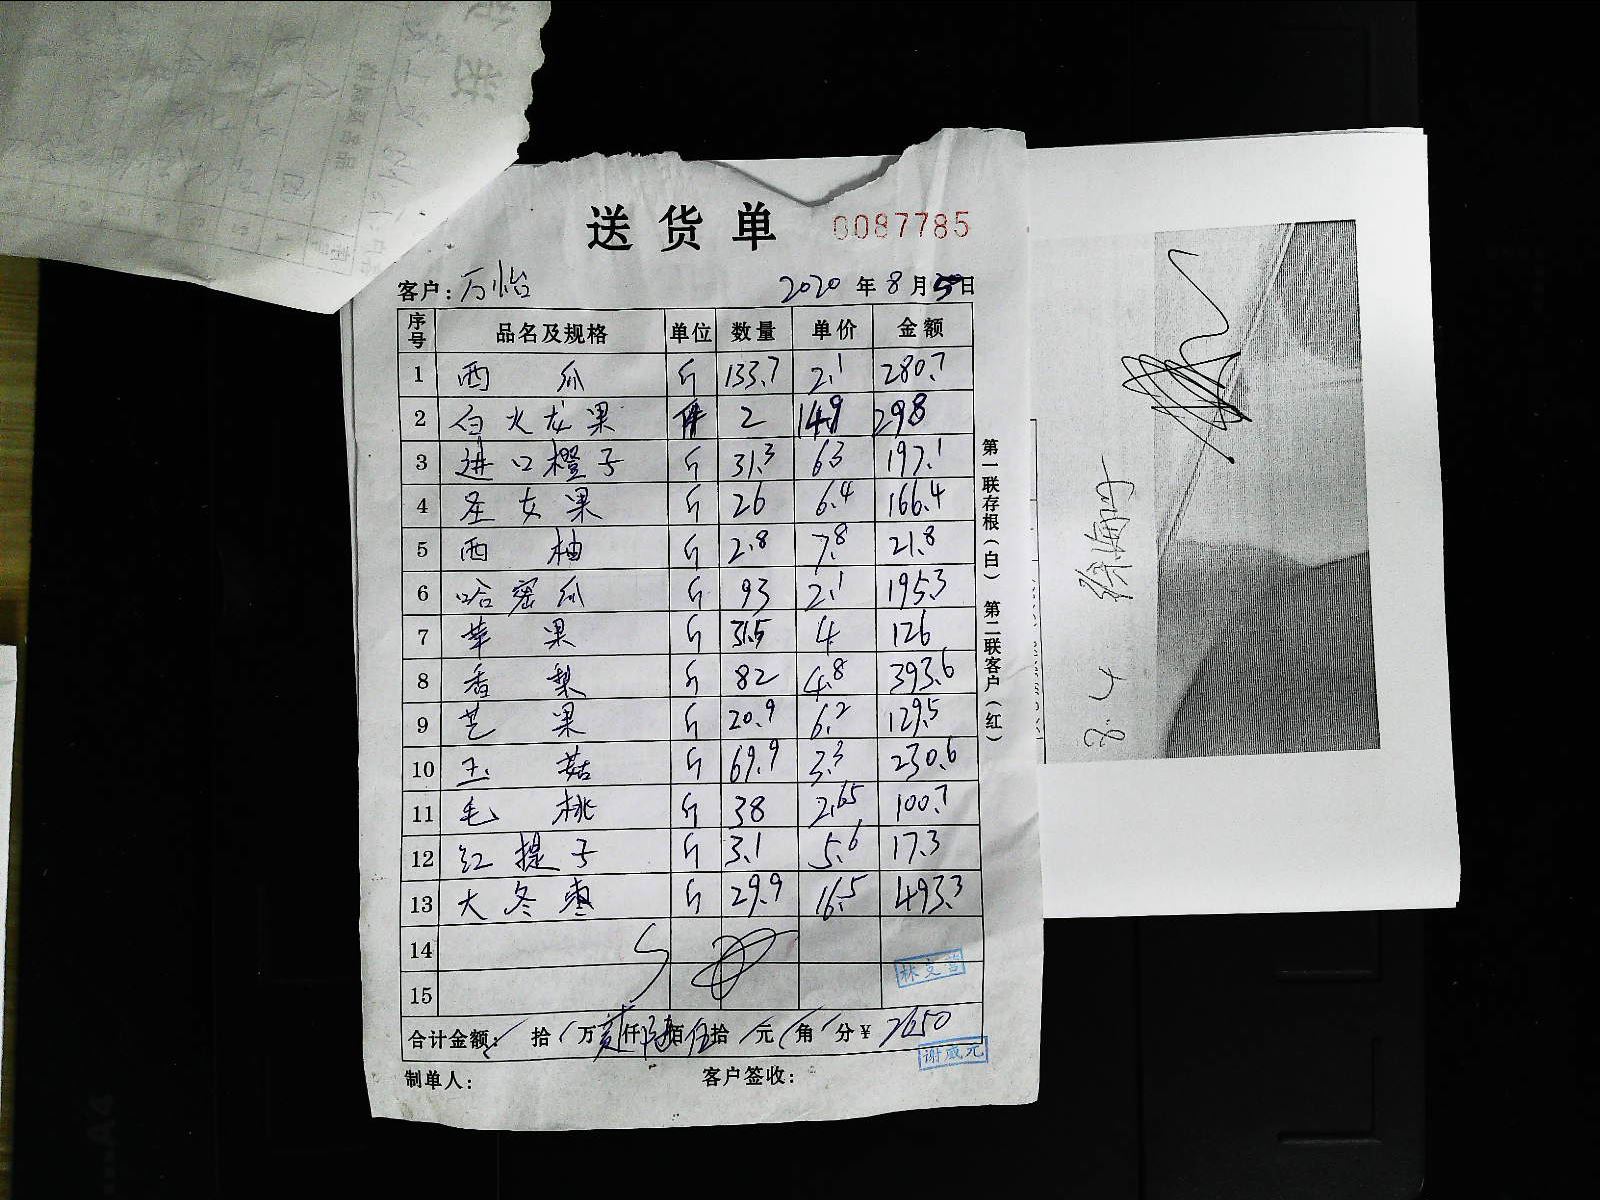 送货单 0087785
客户:万怡 2020年8月5日
序号 品名及规格 单位 数量 单价 金额
1 西瓜 斤 133.7 2.1 280.7
2 白火龙果 件 2 149 298
3 进口橙子 斤 31.3 6.3 197.1
4 圣女果 斤 26 6.4 166.4
5 西柚 斤 2.8 7.8 21.8
6 哈密瓜 斤 93 2.1 195.3
7 苹果 斤 31.5 4 126
8 香梨 斤 82 4.8 393.6
9 芒果 斤 20.9 6.2 129.5
10 玉菇 斤 69.9 3.3 230.6
11 毛桃 斤 38 2.65 100.7
12 红提子 斤 3.1 5.6 17.3
13 大冬枣 斤 29.9 16.5 493.3
14
15
合计金额: 拾 万 贰仟陆佰伍拾 元 角 分 ¥ 2650
制单人: 客户签收:
第一联存根(白) 第二联客户(红)
谢威元
8.4